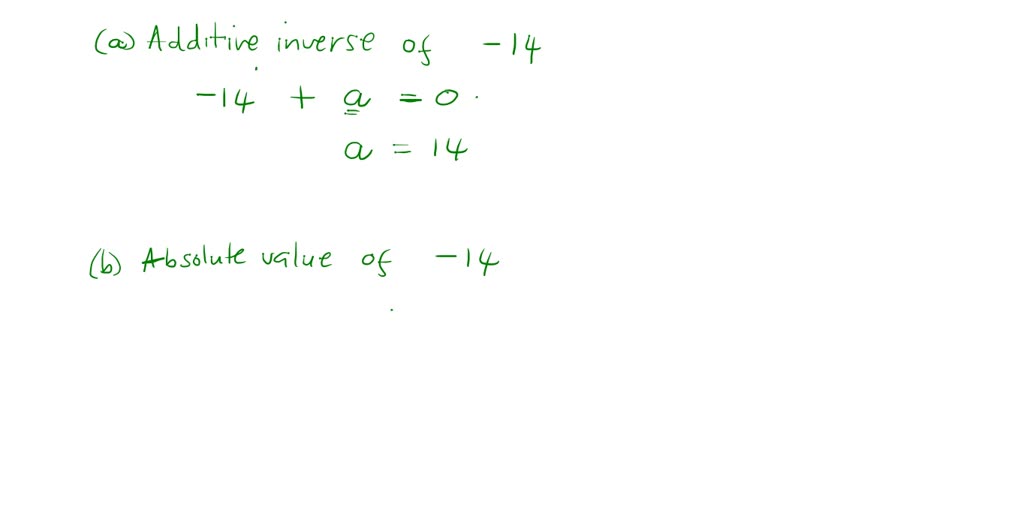 (a) Additive inverse of -14
-14 + a = 0
a = 14
(b) Absolute value of -14